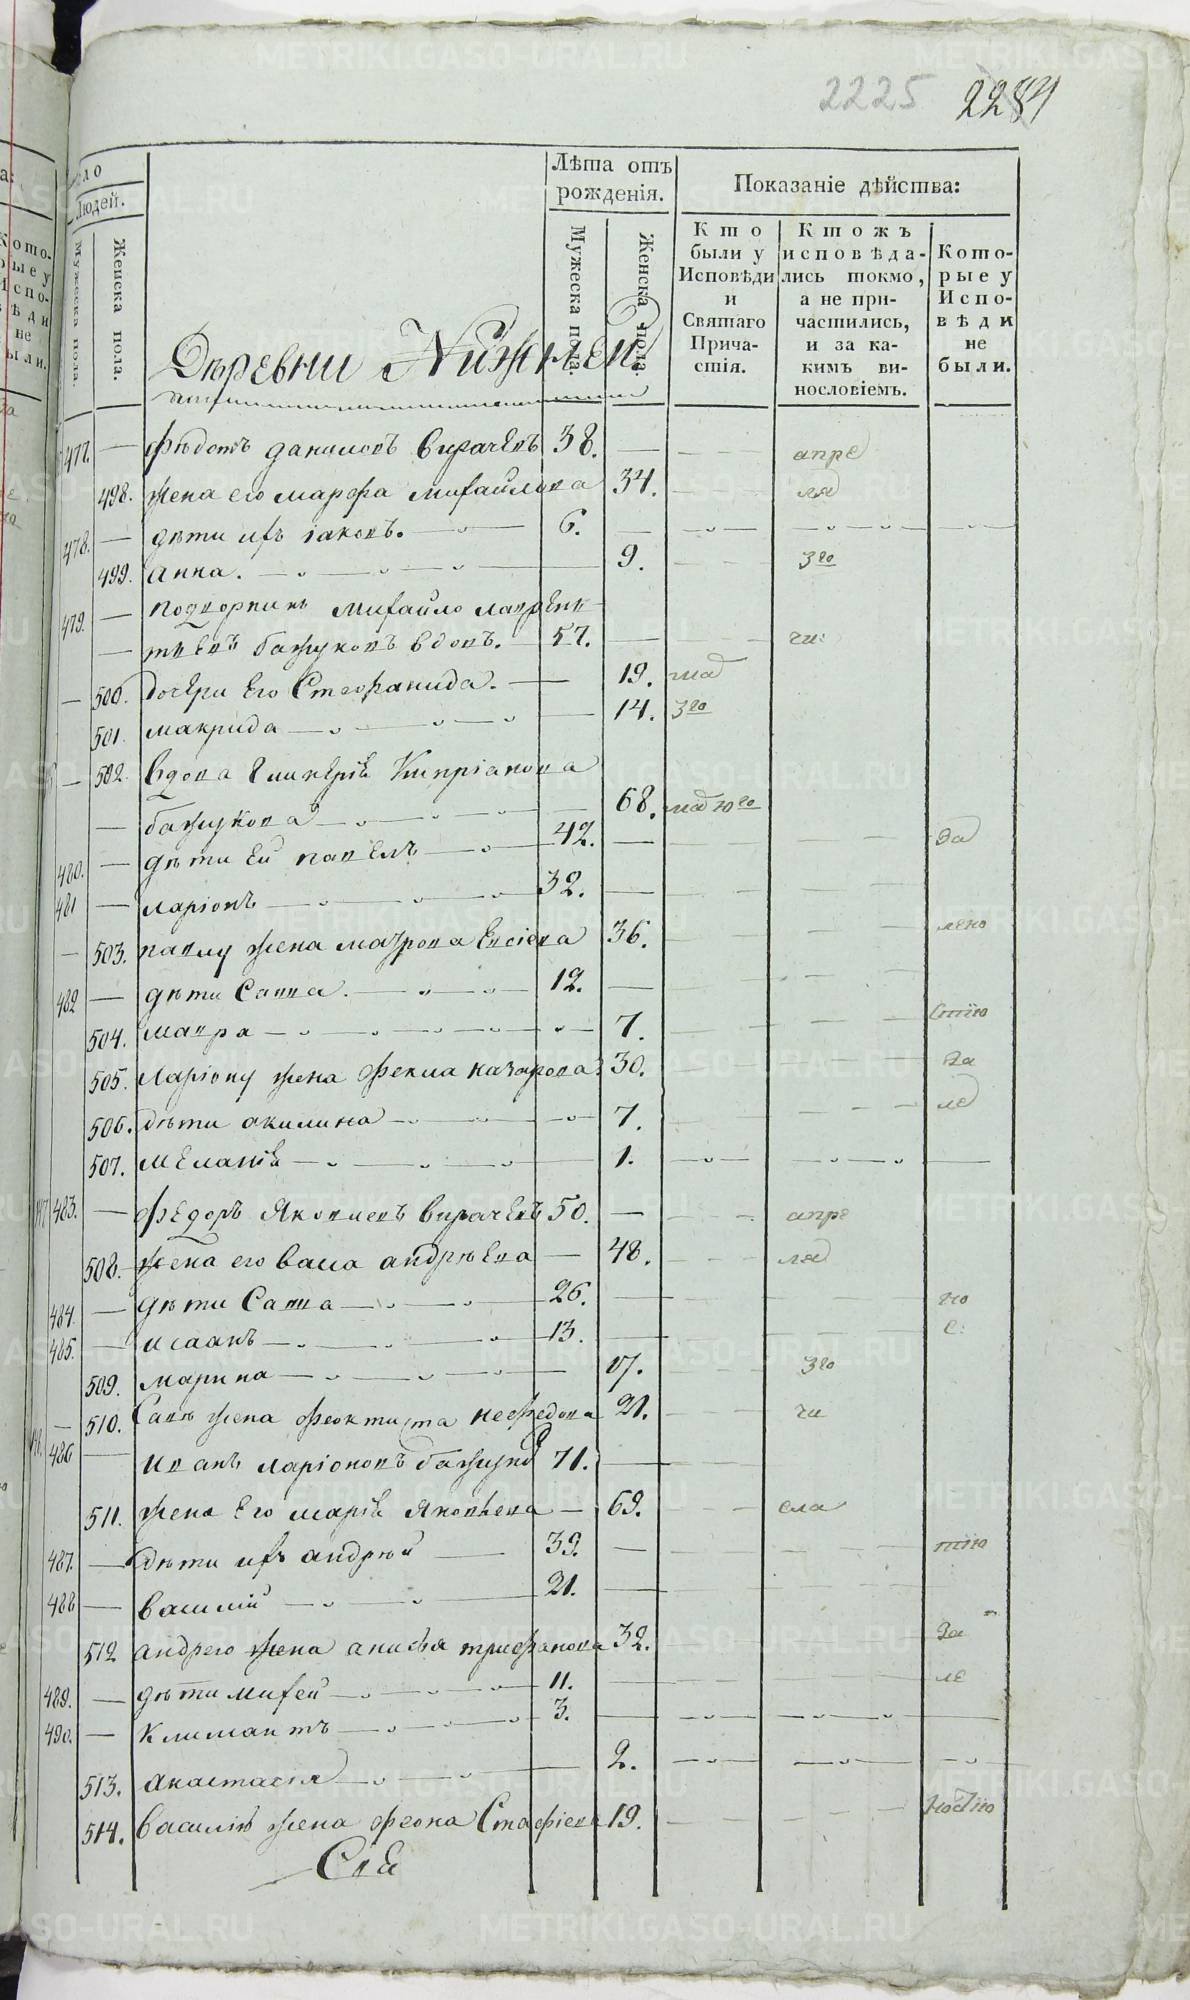 2225 2284
Людей.
Мужеска пола.
Женска пола.
Лѣта отъ рожденія.
Мужеска пола.
Женска пола.
Показаніе дѣйства:
Кто были у Исповѣди и Святаго Прича-стія.
Ктожъ исповѣда-лись токмо, а не при-частились, и за ка-кимъ ви-нословіемъ.
Кото-рые у Испо-вѣди не были.
Деревни Нижней
477. — Федотъ даниловъ вирачевъ 38. — апре
498. жена его марфа михайлова 34. ля
478. — дѣти ихъ іаковъ. 6. —
499. анна. 9. 3го
479. — подворникъ михайло лаврент
— тьевъ бажуковъ вдовъ. 57. — чи:
— 500. дочери его Стефанида. 19. ма
501. макрида 14. 3го
— 502. вдова гликерія Кипріанова
— бажукова 68. маію го
480. — дѣти ей павелъ 42. — За
481 — ларіонъ 32. —
— 503. павлу жена мавра Евсіева 36. лено
482 — дѣти Савва. 12. —
504. мавра 7. стію
505. Ларіону жена Фекла назарова 30. За
506. дѣти акилина 7. ле
507. меланія 1.
483. — Федоръ Яковлевъ вирачевъ 50. — апре
508. жена его васса андрѣева 48. ля
484. — дѣти Савва 26. — но
485. — исаакъ 13. с:
509. марина 17. 3го
— 510. Савѣ жена феоктиста нефедова 21. чи
486 — иванъ ларіоновъ бажуко 71. —
511. жена его марія яковлева 69. сла
487. — дѣти ихъ андрѣй 39. — тію
488 — василій 21. —
512 андрею жена анисья трифанова 32. За
489. — дѣти михей 11. — ле
490. — климантъ 3. —
513. анастасія 2.
514. василію жена феона Стафіева 19. ностію
Сіе